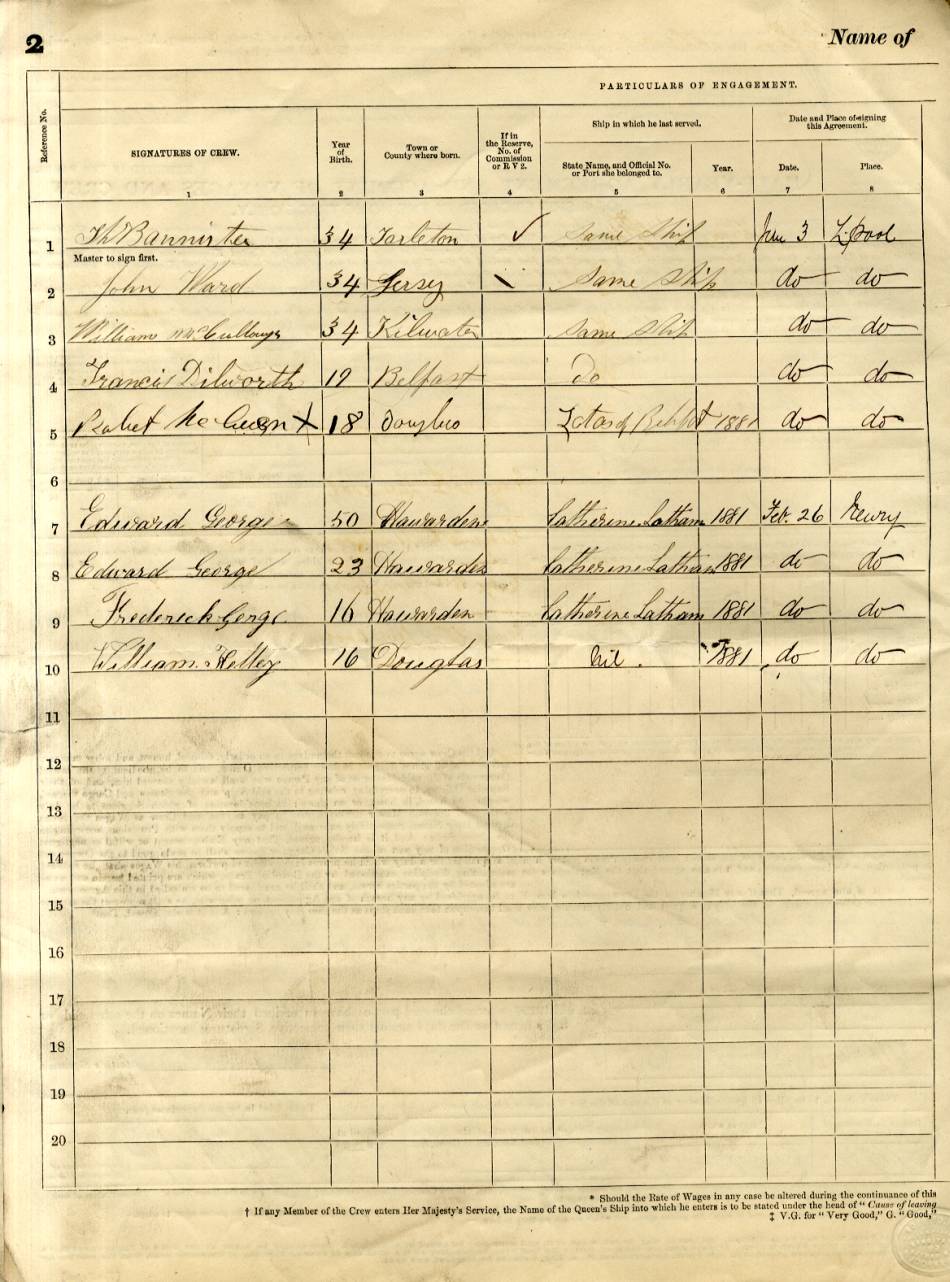 2 Name of
PARTICULARS OF ENGAGEMENT.
Reference No.
SIGNATURES OF CREW.
Year of Birth.
Town or County where born.
If in the Reserve, No. of Commission or R V 2.
Ship in which he last served.
State Name, and Official No. or Port she belonged to.
Year.
Date and Place of signing this Agreement.
Date.
Place.
1 2 3 4 5 6 7 8
1 Th Bannister 34 Tarleton ✓ Same Ship 3 L.pool
Master to sign first.
2 John Ward 34 Jersey \ Same Ship do do
3 William 34 Same Ship do do
4 Francis Dilworth 19 Belfast Do do do
5 X 18 Douglas 1881 do do
6
7 Edward George 50 Hawarden Catherine Latham 1881 Feb. 26 Newry
8 Edward George 23 Hawarden Catherine Latham 1881 do do
9 Frederick George 16 Hawarden Catherine Latham 1881 do do
10 William 16 Douglas Nil. 1881 do do
11
12
13
14
15
16
17
18
19
20
* Should the Rate of Wages in any case be altered during the continuance of this
† If any Member of the Crew enters Her Majesty's Service, the Name of the Queen's Ship into which he enters is to be stated under the head of "Cause of leaving
‡ V.G. for "Very Good," G. "Good,"